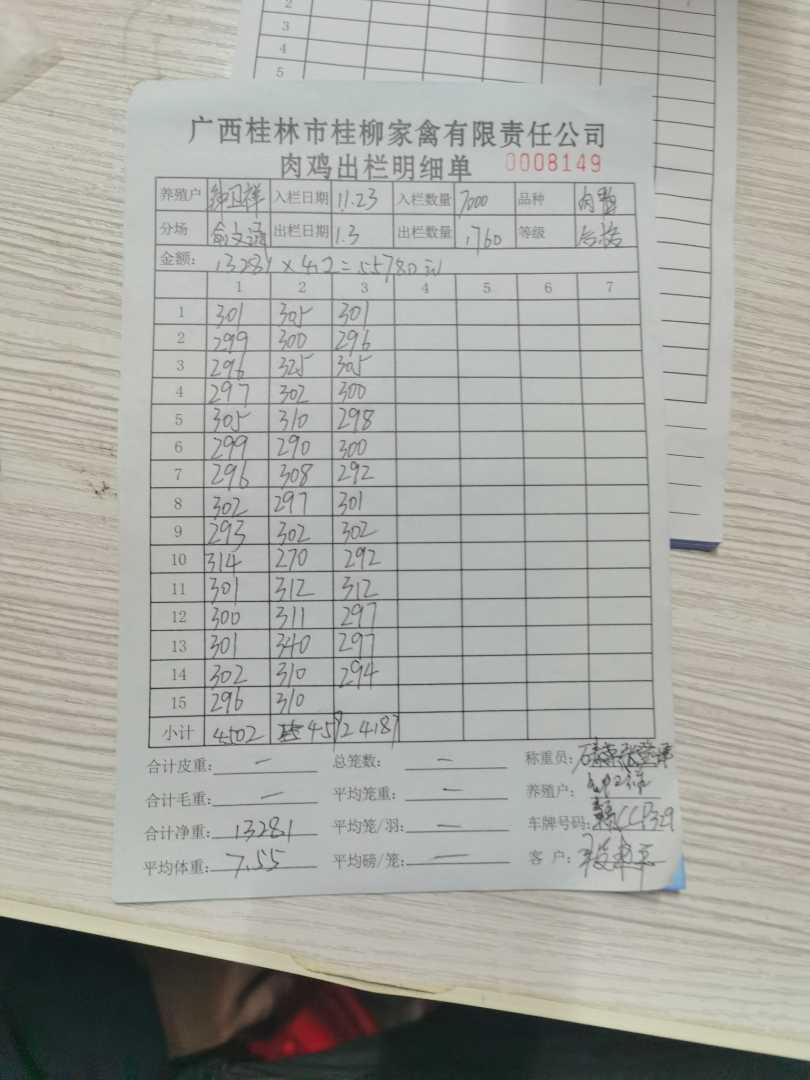 2 7
3
4
5
广西桂林市桂柳家禽有限责任公司
肉鸡出栏明细单 0008149
养殖户 钟卫祥 入栏日期 11.23 入栏数量 7000 品种 肉鸭
分场 俞文清 出栏日期 1.3 出栏数量 1760 等级 合格
金额: 13281 x 4.2 = 55780元
1 2 3 4 5 6 7
1 301 305 301
2 299 300 296
3 296 325 305
4 297 302 300
5 305 310 298
6 299 290 300
7 296 308 292
8 302 297 301
9 293 302 302
10 314 270 292
11 301 312 312
12 300 311 297
13 301 340 297
14 302 310 294
15 296 310
小计 4502 4592 4187
合计皮重: — 总笼数: — 称重员:
合计毛重: — 平均笼重: — 养殖户:
合计净重: 13281 平均笼/羽: — 车牌号码:
平均体重: 7.55 平均磅/笼: — 客 户: